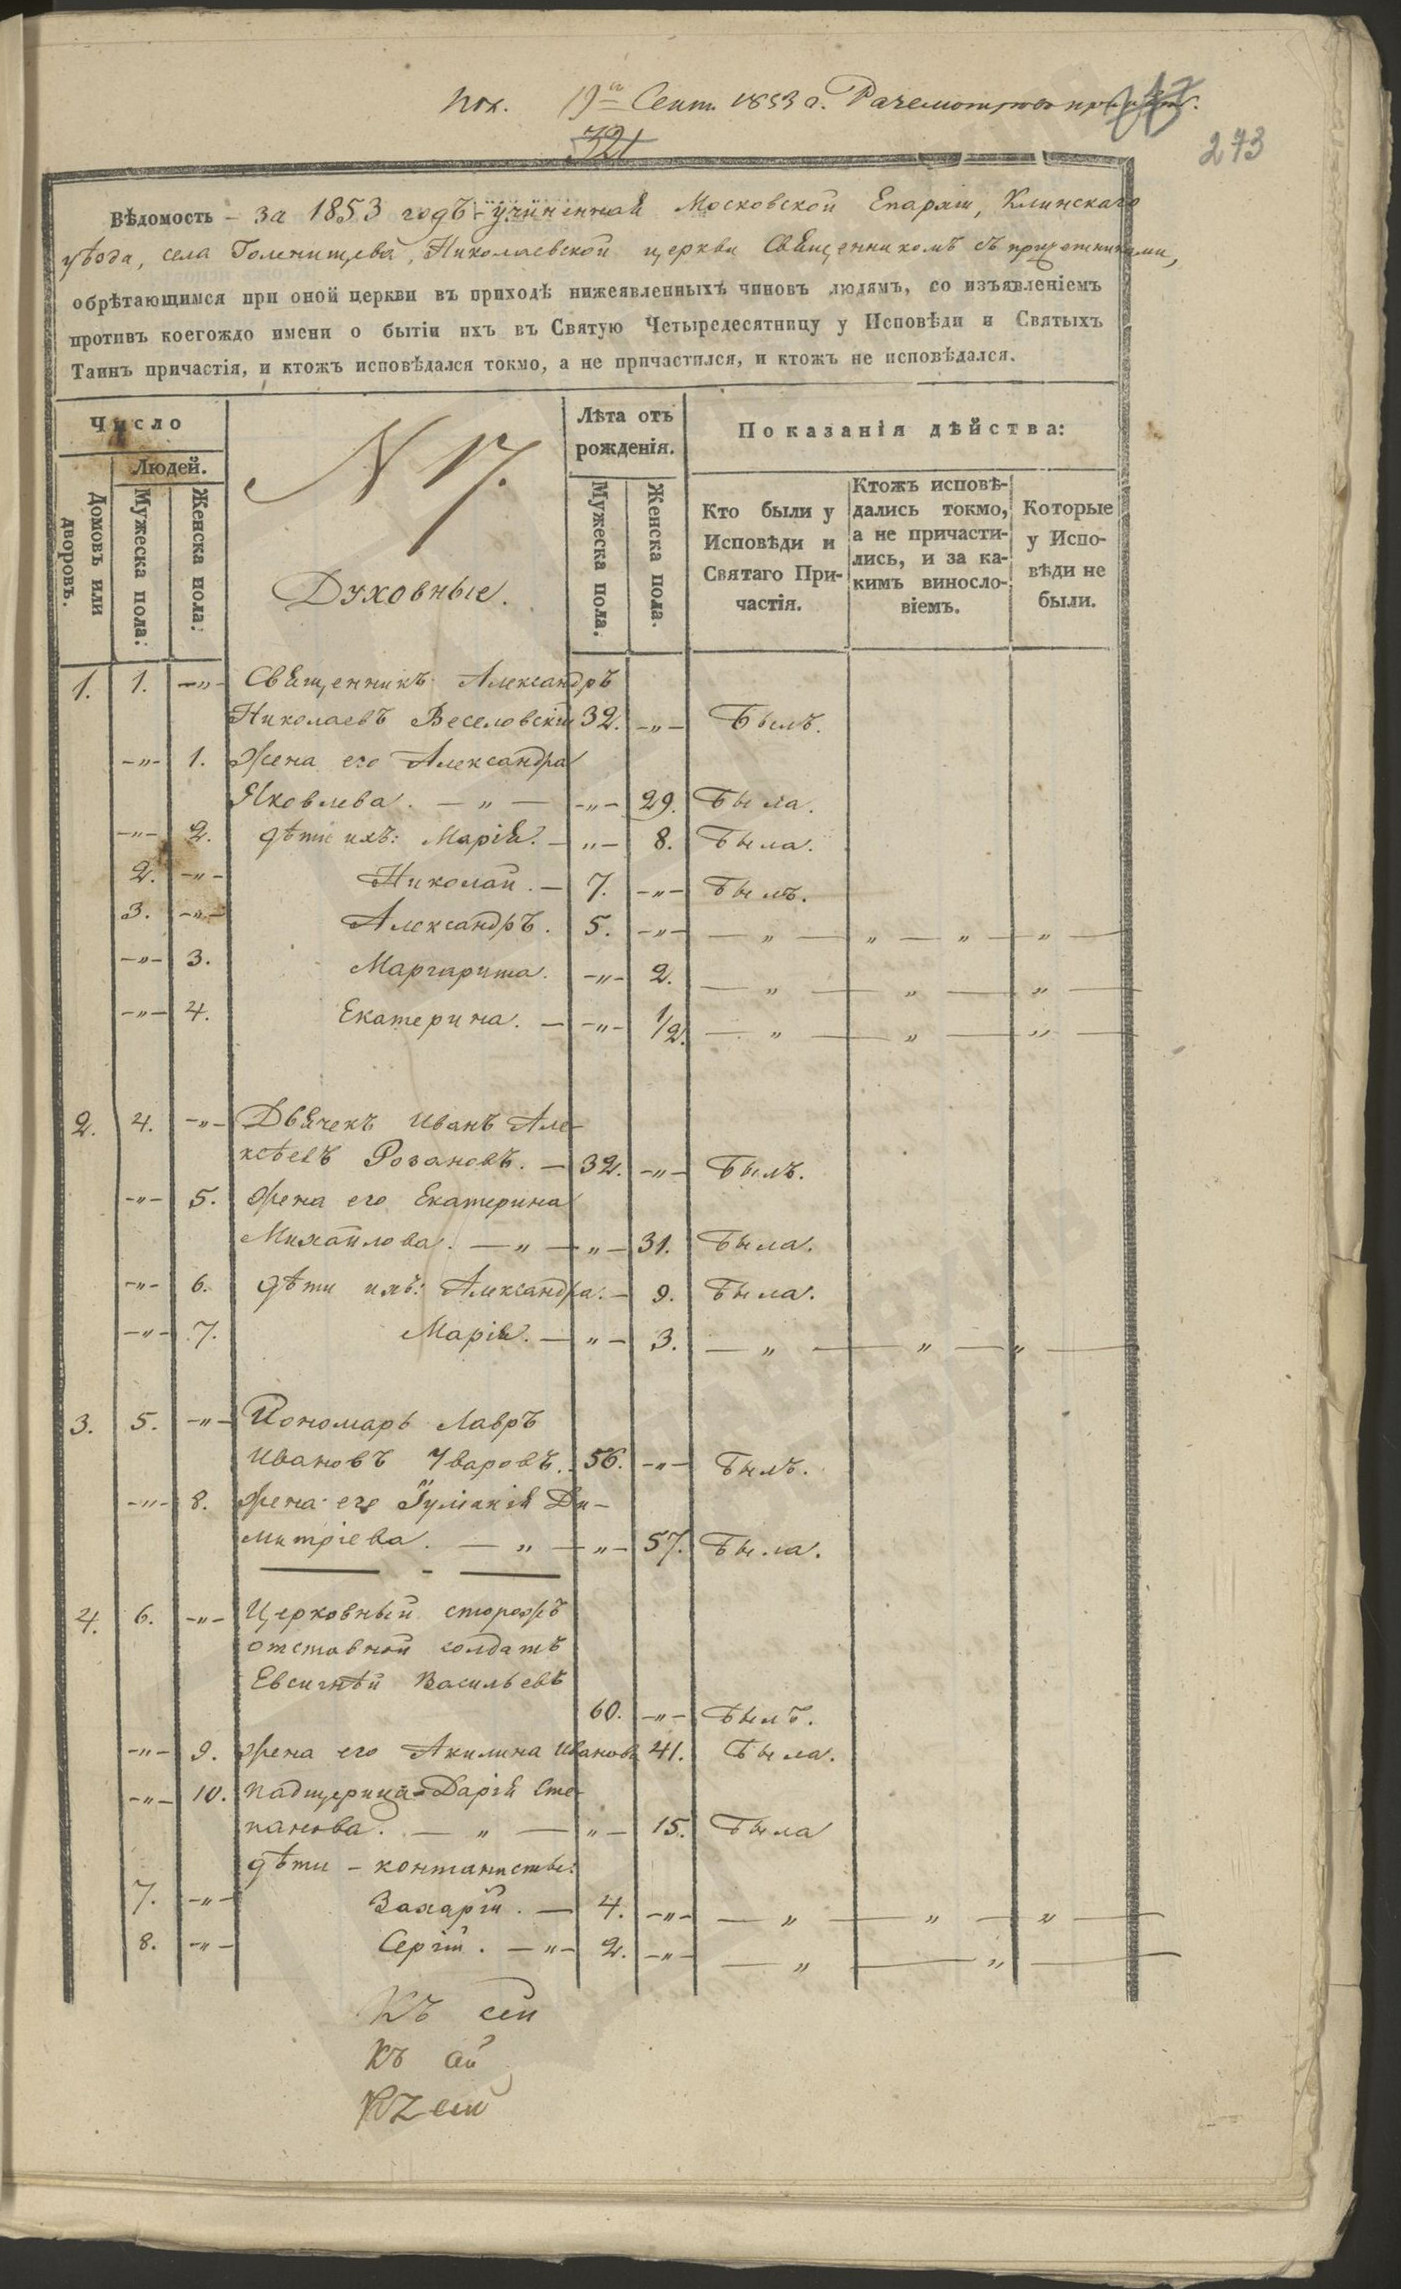 19го Сент. 1853 г.
321
273
Вѣдомость – за 1853 годъ – учиненная Московской Епархіи, Клинскаго
уѣзда, села Голенищева, Николаевской церкви Священникомъ съ причетниками,
обрѣтающимся при оной церкви въ приходѣ нижеявленныхъ чиновъ людямъ, со изъявленіемъ
противъ коегождо имени о бытіи ихъ въ Святую Четыредесятницу у Исповѣди и Святыхъ
Таинъ причастія, и ктожъ исповѣдался токмо, а не причастился, и ктожъ не исповѣдался.
Число
Людей.
Домовъ или дворовъ.
Мужеска пола.
Женска пола.
N 17.
Духовные.
Лѣта отъ рожденія.
Мужеска пола.
Женска пола.
Показанія дѣйства:
Кто были у Исповѣди и Святаго При-
частія.
Ктожъ исповѣ-
дались токмо,
а не причасти-
лись, и за ка-
кимъ винosло-
віемъ.
Которые
у Испо-
вѣди не
были.
1. 1. –"– Священникъ Александръ
Николаевъ Веселовскій 32. –"– Былъ.
–"– 1. Жена его Александра
Яковлева. – " – –"– 29. Была.
–"– 2. дѣти ихъ: Марія. – " – 8. Была.
2. –"– Николай. – 7. –"– Былъ.
3. –"– Александръ. 5. –"– – " – " – " – " –
–"– 3. Маргарита. –"– 2. – " – " – " –
–"– 4. Екатерина. – –"– 1/2. – " – " – " –
2. 4. –"– Дьячекъ Иванъ Але-
ксѣевъ Розановъ. – 32. –"– Былъ.
–"– 5. Жена его Екатерина
Михайлова. – " – " – 31. Была.
–"– 6. дѣти ихъ: Александра. – 9. Была.
–"– 7. Марія. – " – 3. – " – " – " –
3. 5. –"– Пономарь Лавръ
Ивановъ Уваровъ. 56. –"– Былъ.
–"– 8. Жена его Іуліанія Ди-
митріева. – " – " – 57. Была.
4. 6. –"– Церковный сторожъ
отставной солдатъ
Евсигнѣй Васильевъ
60. –"– Былъ.
–"– 9. Жена его Акилина Иванова 41. Была.
–"– 10. Падщерица Дарія Сте-
панова. – " – " – 15. Была
дѣти – контанисты:
7. –"– Захарій. – 4. –"– – " – " – " –
8. –"– Сергій. – " – 2. –"– – " – " –
Къ сей
Къ ай
Къ сей